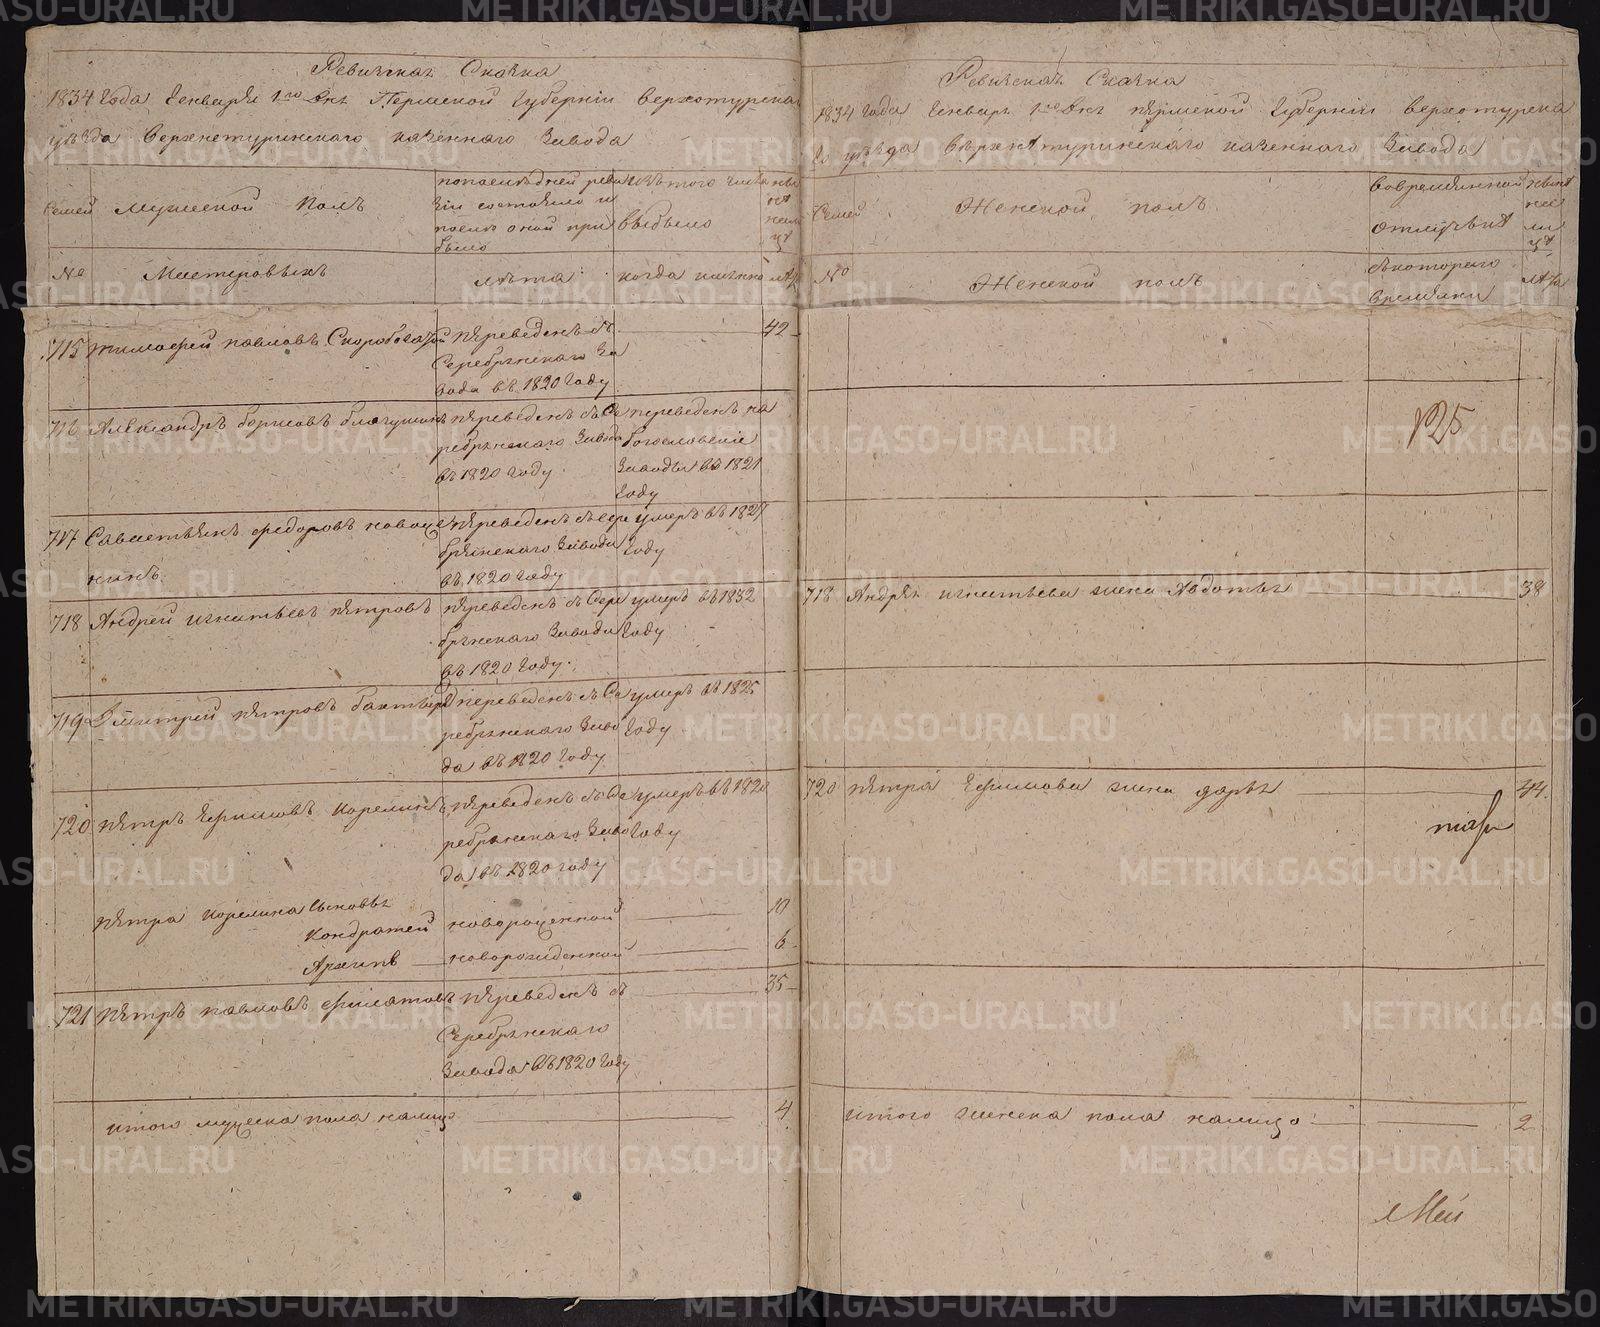 Ревизская Сказка
1834 Года Генваря 1го дня Пермской Губернии Верхотурскаго
уѣзда Верхнетуринскаго казеннаго завода
Семей
Мужеской полъ
попослѣдней реви
зіи состояло и
послѣ оной при
было
изъ того числа
выбыло
ны
нѣ
на
ли
цѣ
№
Мастеровыхъ
лѣта
когда именно
лѣта
715 тимофей павловъ Скоробогатой
пѣреведенъ съ
Серебрянскаго за
вода въ 1820 Году
42
716 Александръ борисовъ
пѣреведенъ съ Се
ребрянскаго завода
въ 1820 Году
переведенъ на
богословскіе
заводы въ 1821
Году
717 Савастьянъ федоровъ
пѣреведенъ съ Сере
брянскаго завода
въ 1820 Году
умеръ въ 1827
Году
718 Андрей игнатьевъ пѣтровъ
пѣреведенъ съ Сере
брянскаго завода
въ 1820 Году
умеръ въ 1832
Году
719 Дмитрей пѣтровъ
переведенъ съ Се
ребрянскаго заво
да въ 1820 Году
умеръ въ 1825
Году
720 пѣтръ Ефимовъ Корелинъ
пѣреведенъ съ Се
ребрянскаго заво
да въ 1820 году
умеръ въ
Году
пѣтра корелина Сыновья
Кондратей
новорожденной
10
Архипъ
новорожденной
6
721 пѣтръ павловъ филатовъ
пѣреведенъ съ
Серебрянскаго
завода въ 1820 Году
35
итого мужеска пола налицо
4
Ревизская Сказка
1834 Года Генваря 1го дня пѣрмской Губерніи Верхотурска
го уѣзда Верхнѣтуринскаго казеннаго завода
Семей
Женской полъ
вовременной
отлучкѣ
нынѣ
на
ли
цѣ
№
Женской полъ
съкотораго
времяни
лѣта
125
718 Андрея игнатьева жена Авдотья
38
720 пѣтра Ефимова жена дарья
44
итого женска пола налицо
2
METRIKI.GASO-URAL.RU